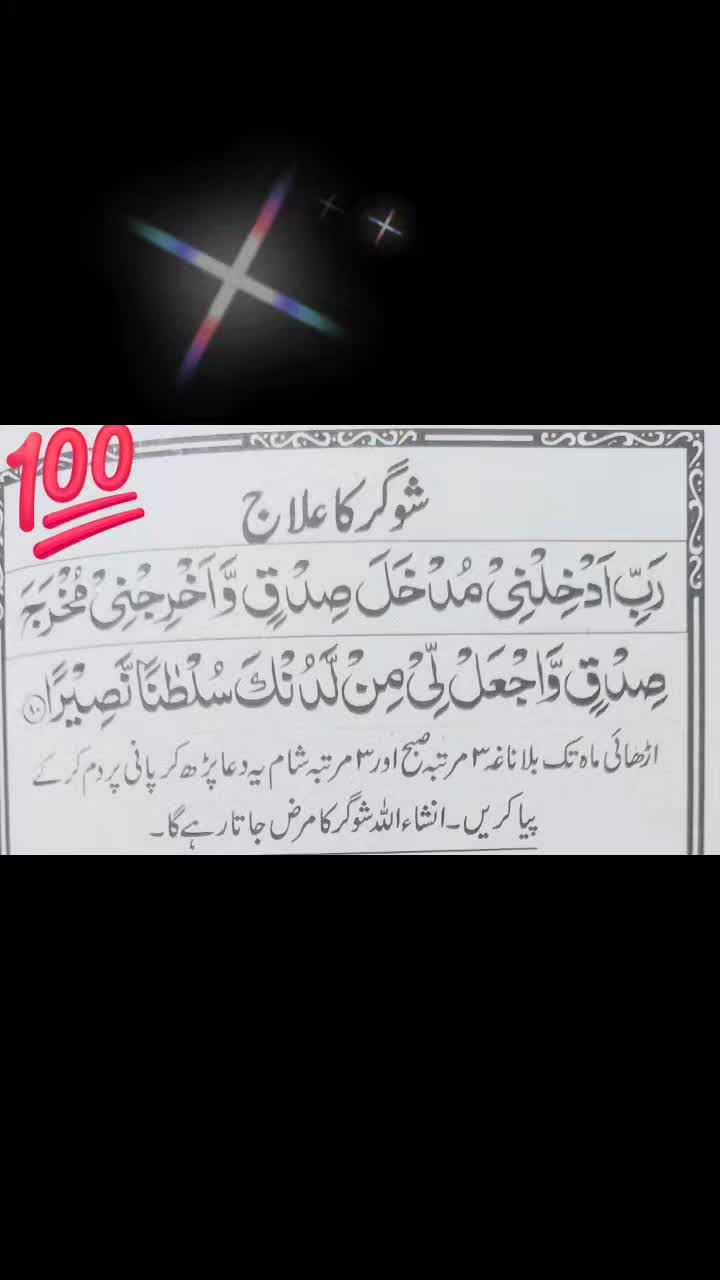 100
شوگر کا علاج
رَبِّ اَدْخِلْنِیْ مُدْخَلَ صِدْقٍ وَّاَخْرِجْنِیْ مُخْرَجَ
صِدْقٍ وَّاجْعَلْ لِّیْ مِنْ لَّدُنْكَ سُلْطٰنًا نَّصِیْرًا ۝۸۰
اڑھائی ماہ تک بلا ناغہ ۳ مرتبہ صبح اور ۳ مرتبہ شام یہ دعا پڑھ کر پانی پر دم کر کے
پیا کریں۔ انشاء اللہ شوگر کا مرض جاتا رہے گا۔